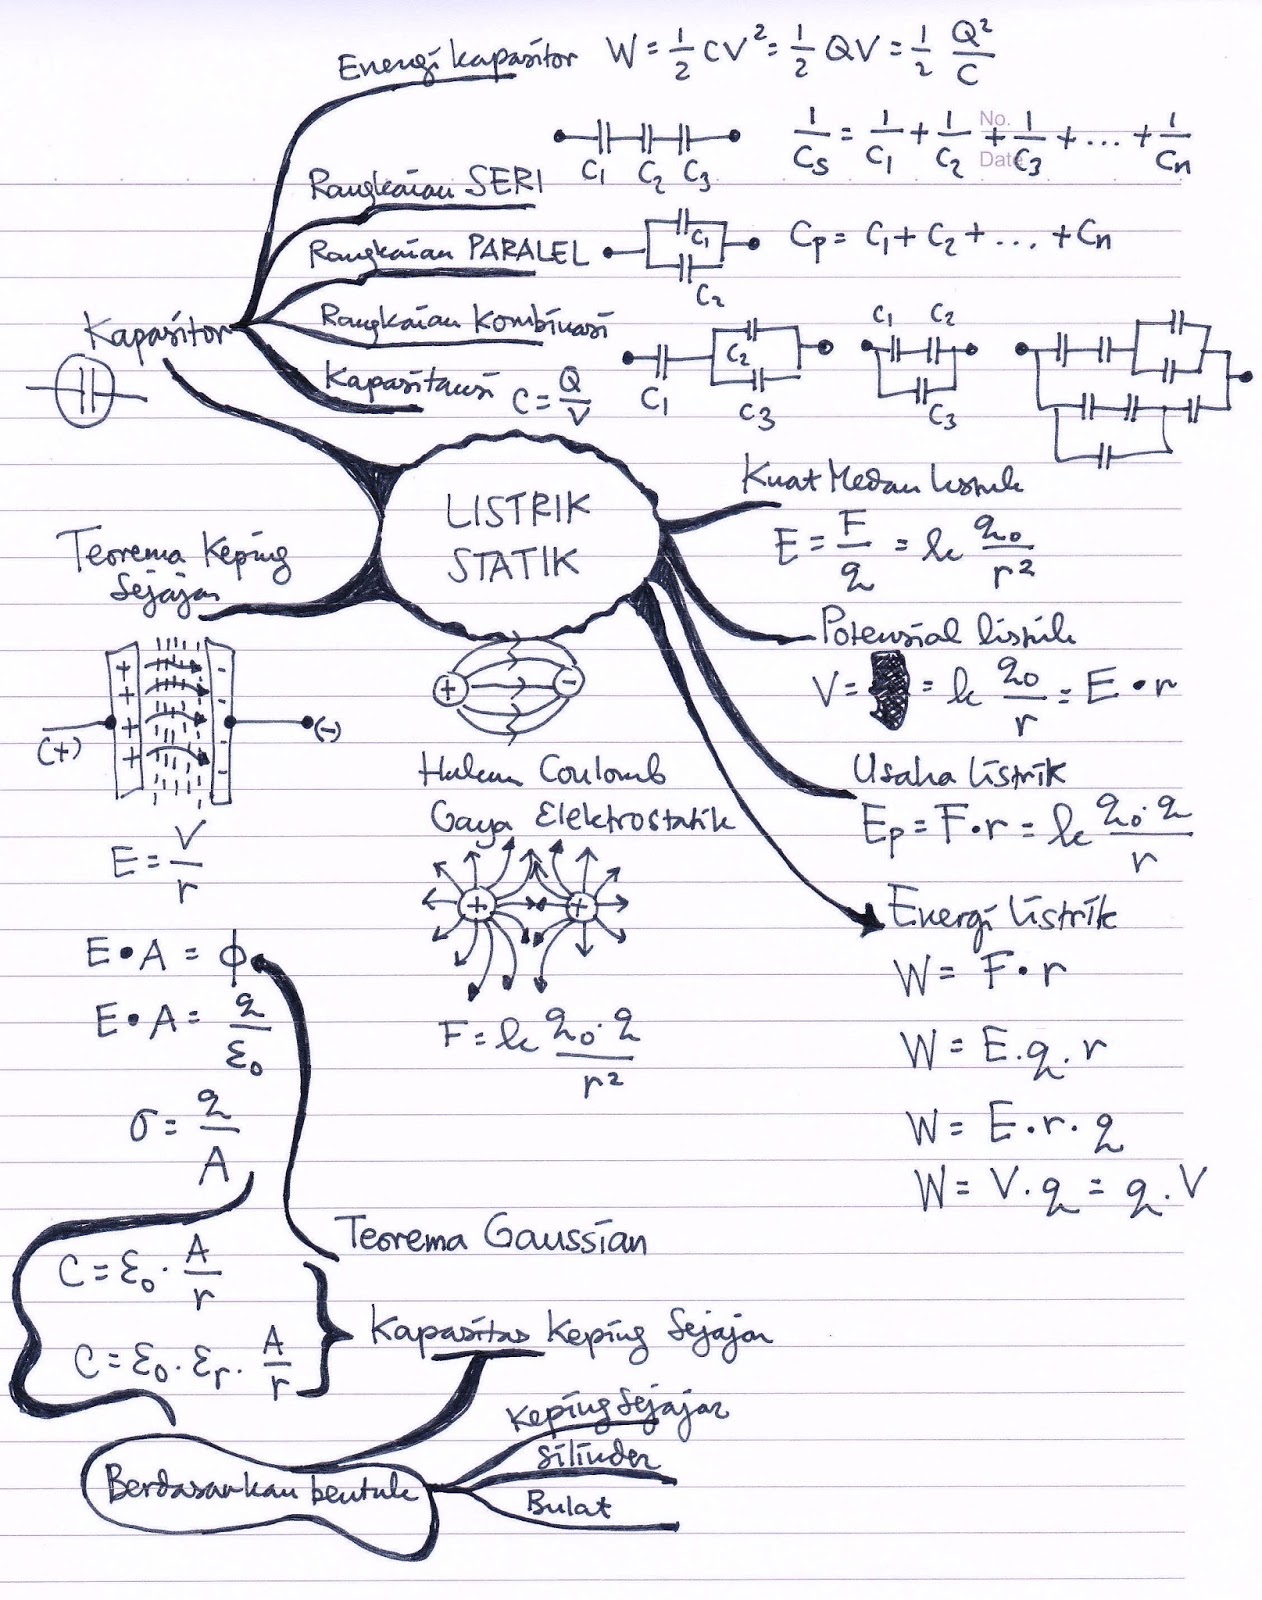 Energi kapasitor W = 1/2 CV² = 1/2 QV = 1/2 Q²/C
No.
Date
C1 C2 C3
1/Cs = 1/C1 + 1/C2 + 1/C3 + ... + 1/Cn
Rangkaian SERI
Rangkaian PARALEL
C1
C2
Cp = C1 + C2 + ... + Cn
Kapasitor
Rangkaian Kombinasi
C1 C2 C3
C1 C2 C3
Kapasitansi C = Q/V
LISTRIK
STATIK
Kuat Medan listrik
E = F/q = k q0/r²
Potensial listrik
V = = k q0/r = E • r
Usaha listrik
Ep = F • r = k q0 · q/r
Energi listrik
W = F • r
W = E . q . r
W = E • r . q
W = V . q = q . V
Teorema Keping
Sejajar
+ -
+ -
+ -
+ -
(+) (-)
E = V/r
+ -
Hukum Coulomb
Gaya Elektrostatik
+ +
F = k q0 · q/r²
E • A = ϕ
E • A = q/ε0
σ = q/A
Teorema Gaussian
C = ε0 . A/r
C = ε0 . εr . A/r
Kapasitas Keping Sejajar
Berdasarkan bentuk
Keping Sejajar
Silinder
Bulat